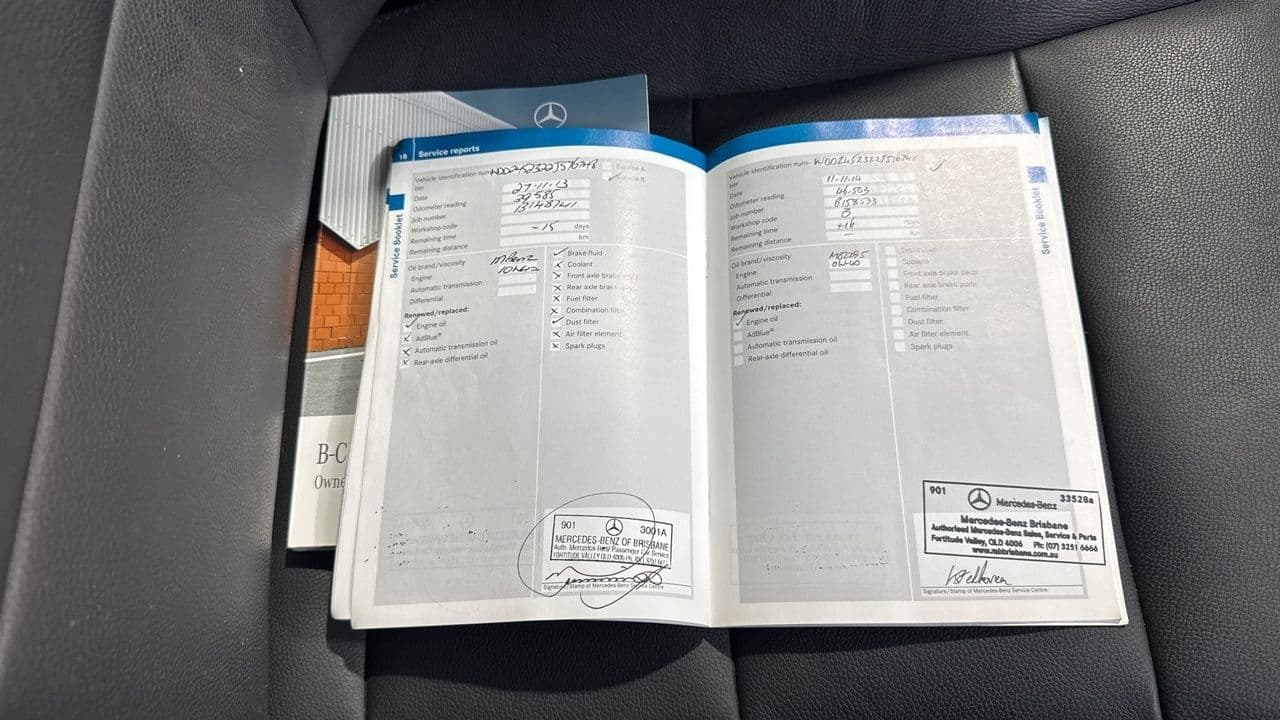 B-C
Owne
18 Service reports
Service Booklet
Vehicle identification num-
ber
Service A
Service B
Date 27.11.13
Odometer reading
Job number
Workshop code
Remaining time -15 days
Remaining distance km
Oil brand/viscosity
Engine
Automatic transmission
Differential
Renewed/replaced:
Engine oil
AdBlue®
Automatic transmission oil
Rear-axle differential oil
Brake fluid
Coolant
Front axle brake
Rear axle brake
Fuel filter
Combination filter
Dust filter
Air filter element
Spark plugs
901 3001A
MERCEDES-BENZ OF BRISBANE
Auth. Mercedes-Benz Passenger Car Service
FORTITUDE VALLEY QLD 4006
Signature/Stamp of Mercedes-Benz Service Centre
Service Booklet
Vehicle identification num-
ber
Date 11-11-14
Odometer reading 46.503
Job number B158533
Workshop code B
Remaining time +16
Remaining distance -
Oil brand/viscosity
Engine
Automatic transmission
Differential
Renewed/replaced:
Engine oil
AdBlue®
Automatic transmission oil
Rear-axle differential oil
Brake fluid
Coolant
Front axle brake pads
Rear axle brake pads
Fuel filter
Combination filter
Dust filter
Air filter element
Spark plugs
901 Mercedes-Benz 33528a
Mercedes-Benz Brisbane
Authorised Mercedes-Benz Sales, Service & Parts
Fortitude Valley, QLD 4006 Ph: (07) 3251 6666
www.mbbrisbane.com.au
Signature/Stamp of Mercedes-Benz Service Centre